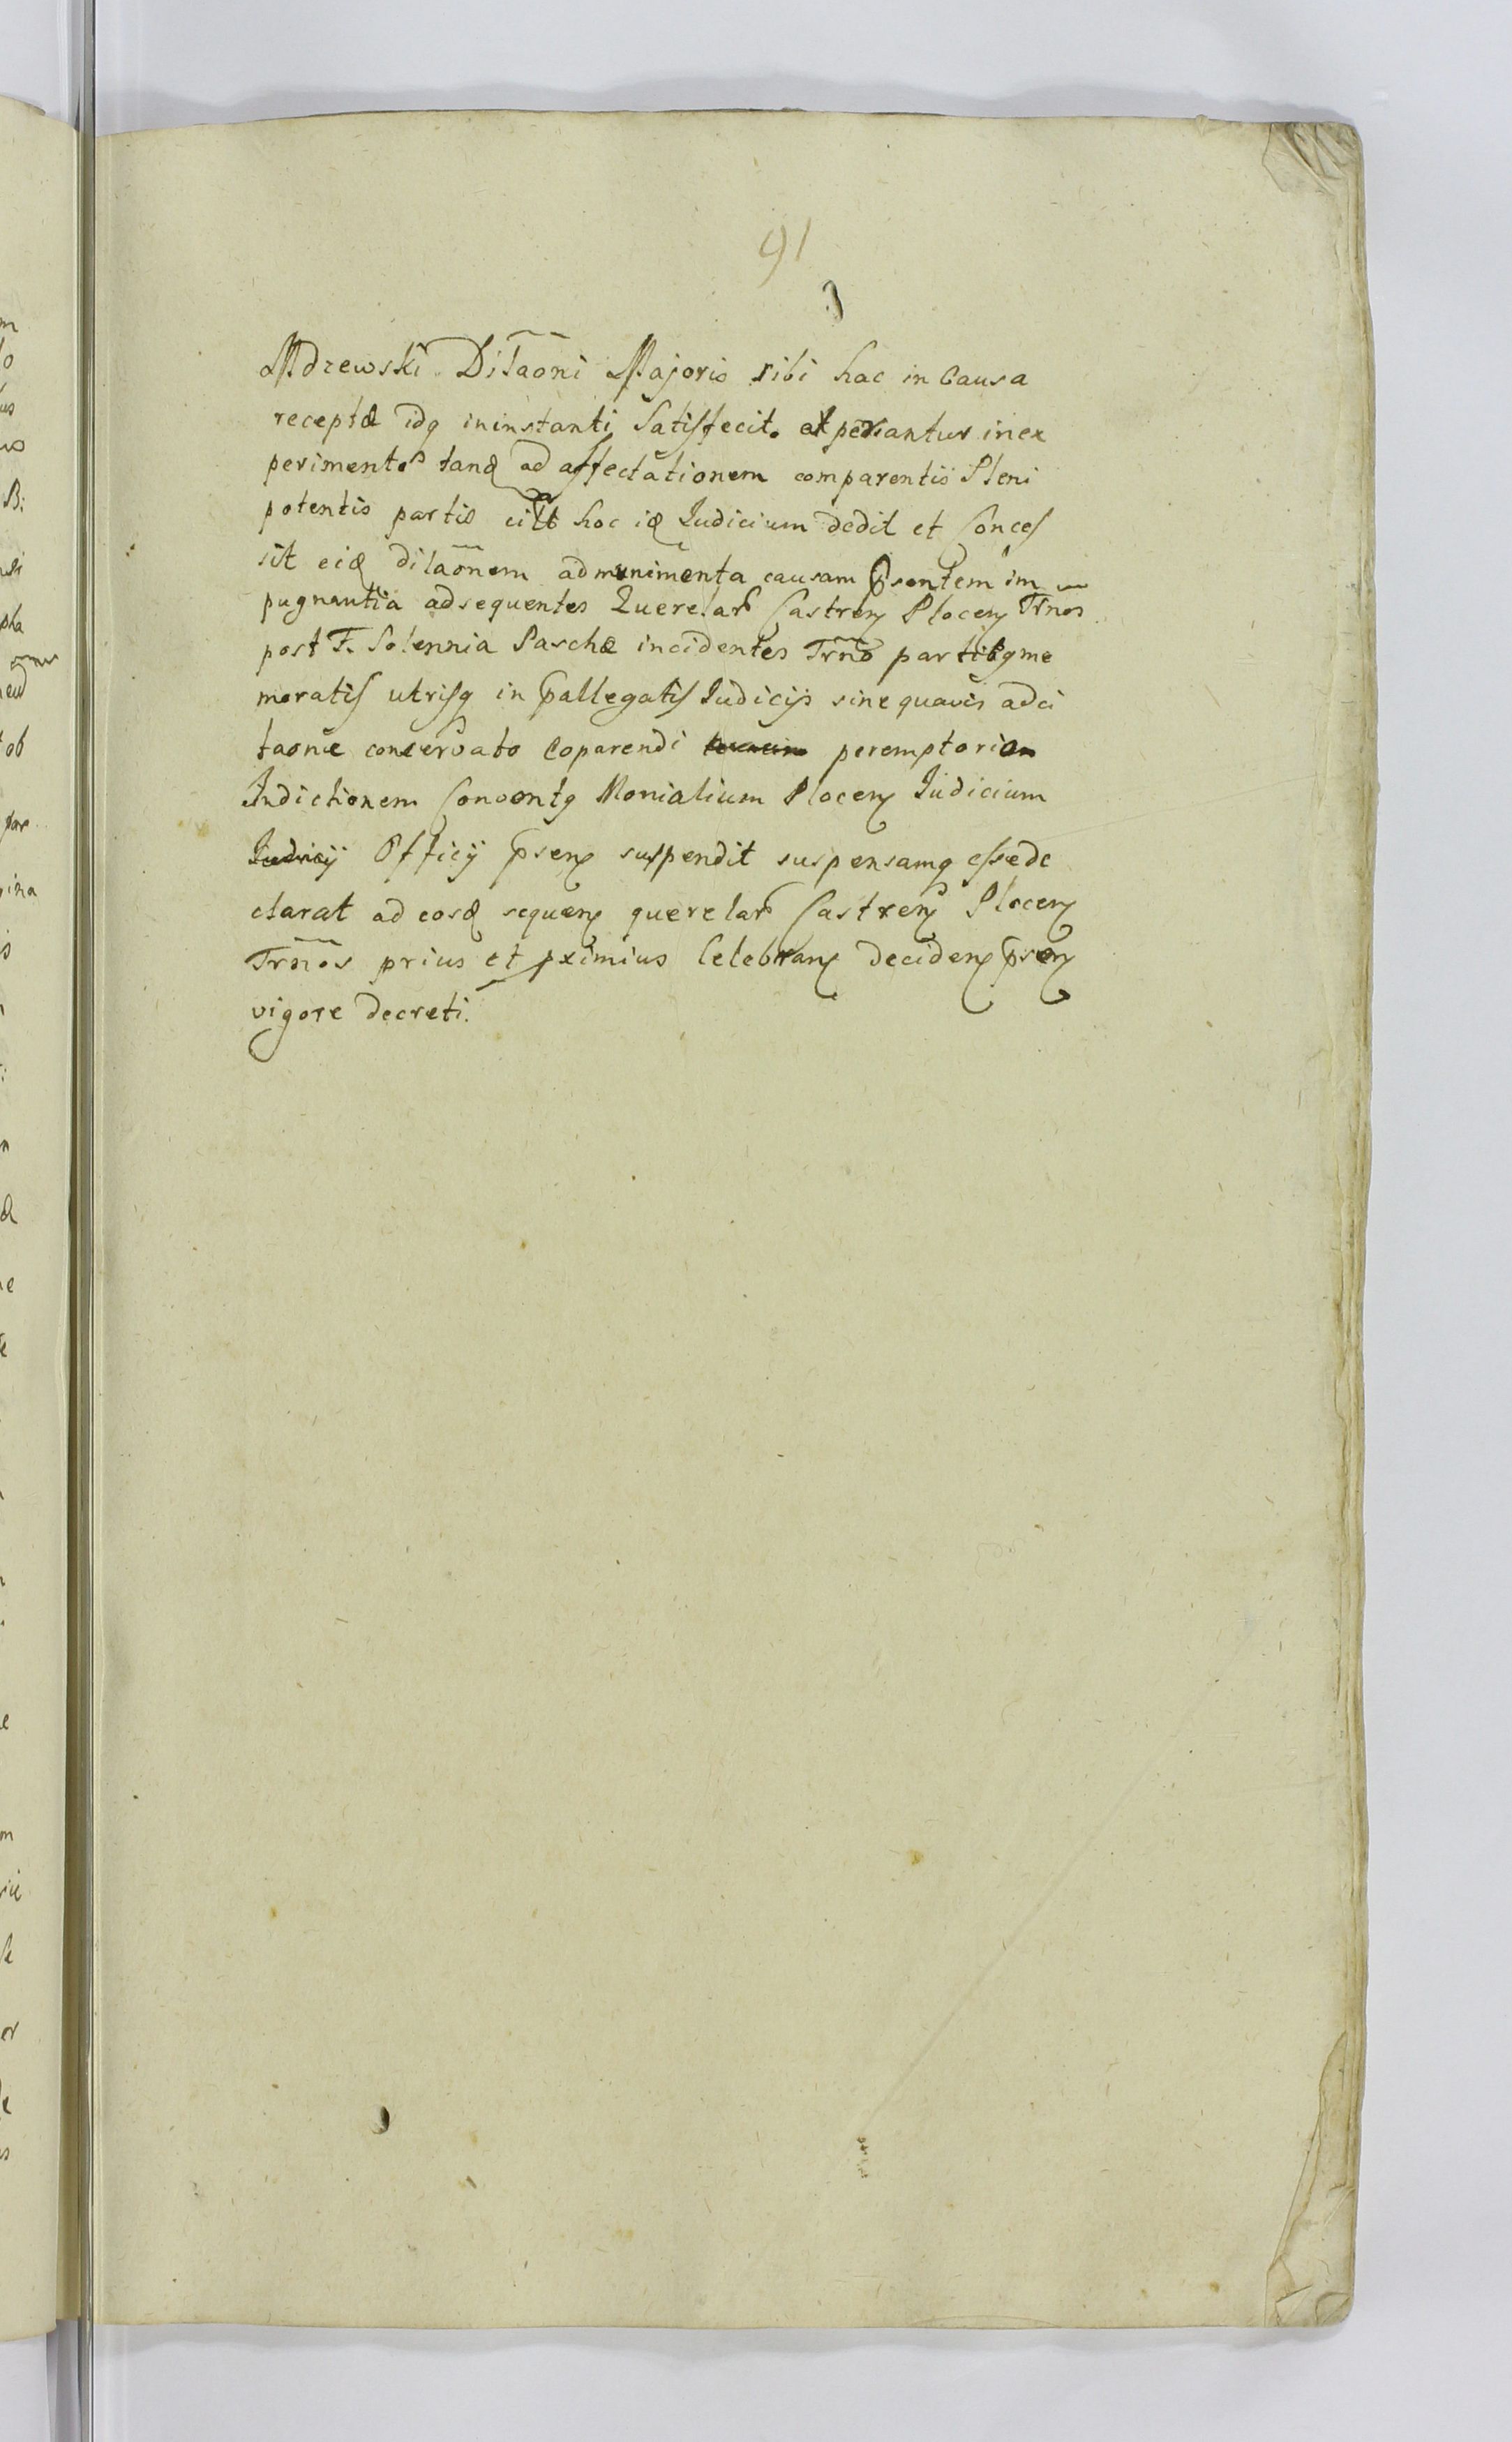 91
Mdzewski. Dilaõni Majoris sibi hac in Causa
receptæ idq ininstanti Satisfecit. experiantur inex
perimento tand ad affectationem comparentis Pleni
potentis partis citt hoc id Judicium dedit et Conces
sit eid dilaõnem admunimenta causam psentem im
pugnantia adsequentes Querelar Castren Plocen Trños
post F. Solennia Paschæ incidentes Trño partibq me
moratis utrisq in pallegatis Judicijs sine quavis adci
taone conservato Coparendi peremptoriem
Indictionem Conventq Monialium Plocen Judicium
Judicij Officij psen suspendit suspensamq esse de
clarat ad eosd sequen querelar Castren Plocen
Trños prius et pximius Celebran deciden psen
vigore decreti.